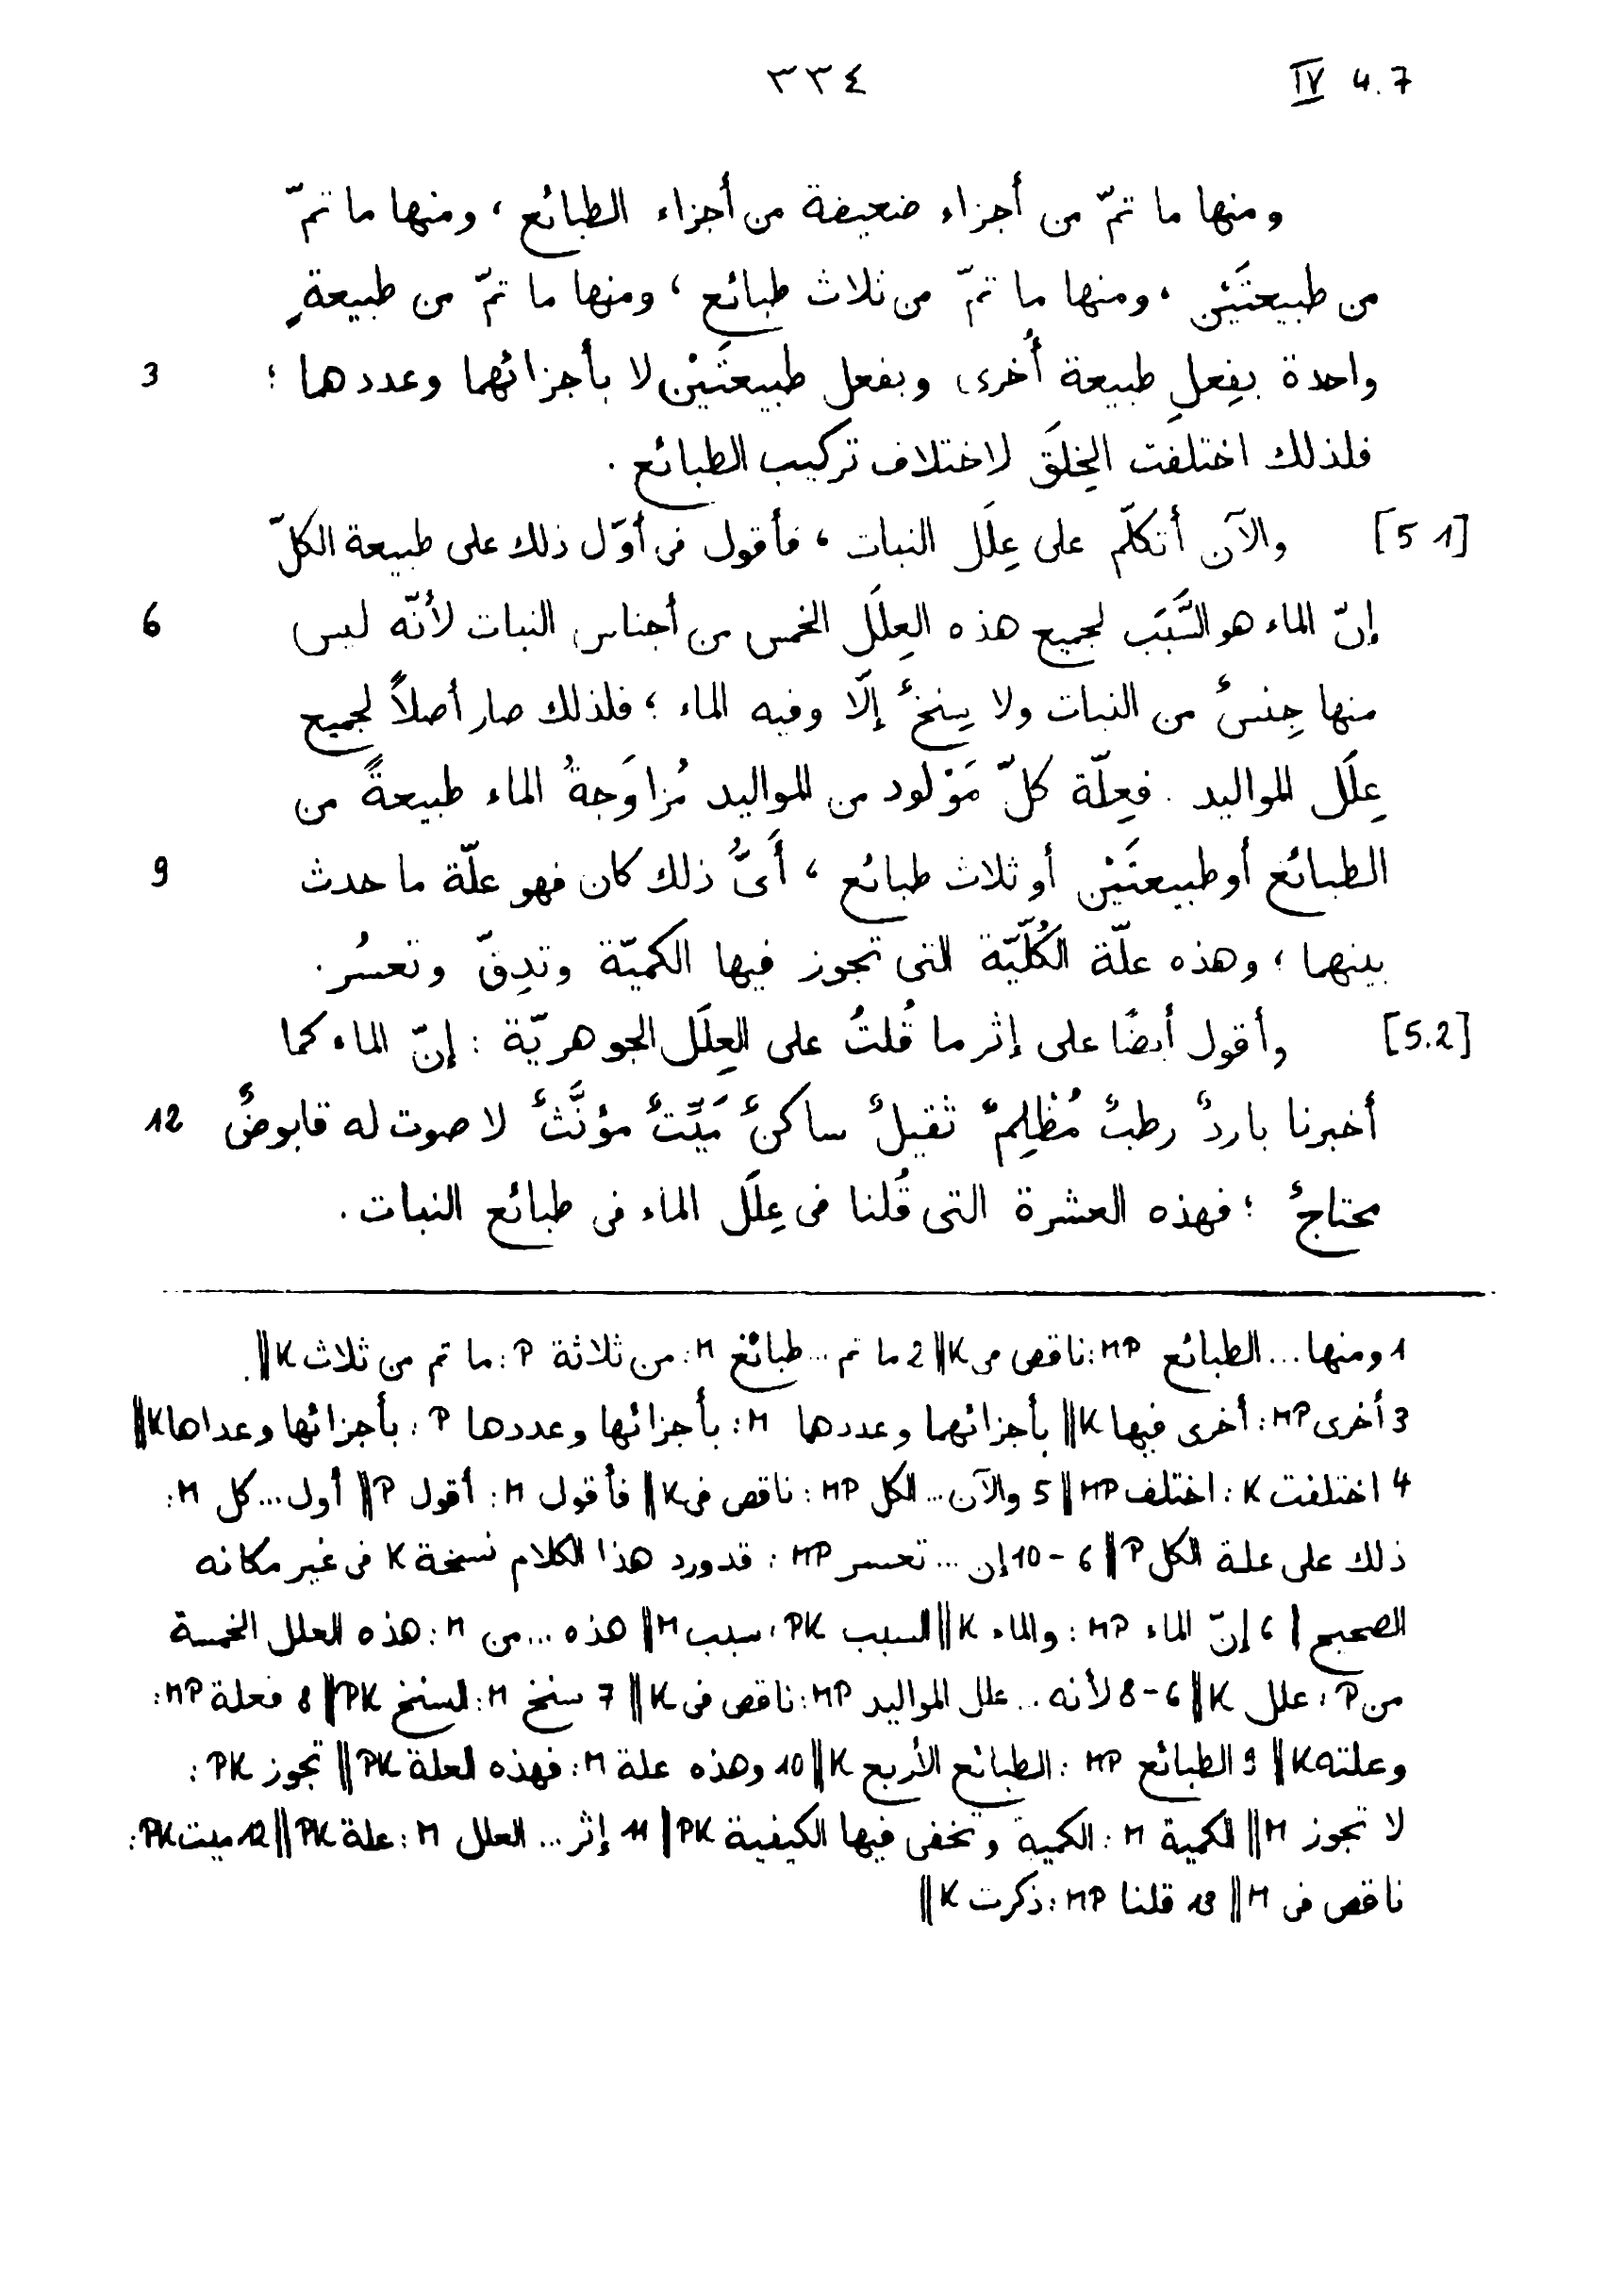 ٣٣٤ IV 4.7
ومنها ما تمّ من أجزاء ضعيفة من أجزاء الطبائع ، ومنها ما تمّ
من طبيعتَيْن ، ومنها ما تمّ من ثلاث طبائع ، ومنها ما تمّ من طبيعةٍ
3 واحدة بفِعلِ طبيعة أُخرى وبفعل طبيعتَيْن لا بأجزائهما وعددهما ؛
فلذلك اختلفت الخِلقَ لاختلاف تركيب الطبائع .
[5 1] والآن أتكلّم على عِلَل النبات ، فأقول فى أوّل ذلك على طبيعة الكلّ
6 إنّ الماء هو السَّبَب لجميع هذه العِلَل الخمس من أجناس النبات لأنّه ليس
منها جِنسٌ من النبات ولا سِنخٌ إلّا وفيه الماء ؛ فلذلك صار أصلاً لجميع
عِلَل المواليد . فعِلّة كلّ مَوْلود من المواليد مُزاوَجةُ الماء طبيعةً من
9 الطبائع أو طبيعتَيْن أو ثلاث طبائع ، أَىُّ ذلك كان فهو علّة ما حدث
بينهما ؛ وهذه علّة الكُلّيّة التى تجوز فيها الكميّة وتدِقّ وتعسُر .
[5.2] وأقول أيضًا على إثر ما قُلتُ على العِلَل الجوهريّة : إنّ الماء كما
12 أخبرنا باردٌ رطبٌ مُظْلِمٌ ثقيلٌ ساكنٌ مَيِّتٌ مؤنَّثٌ لا صوت له قابوضٌ
محتاجٌ ؛ فهذه العشرة التى قُلنا فى عِلَل الماء فى طبائع النبات .
1 ومنها ... الطبائع MP : ناقص فى K || 2 ما تم ... طبائع M : من ثلاثة P : ما تم من ثلاث K || .
3 أخرى MP : أخرى فيها K || بأجزائهما وعددها M : بأجزائها وعددها P : بأجزائها وعداها K ||
4 اختلفت K : اختلف MP || 5 والآن ... الكل MP : ناقص فى K || فأقول M : أقول P || أول ... كل M :
ذلك على علة الكل P || 6 - 10 إن ... تعسر MP : قد ورد هذا الكلام نسخة K فى غير مكانه
الصحيح | 6 إنّ الماء MP : والماء K || السبب PK ، سبب M || هذه ... من M : هذه العلل الخمسة
من P ، علل K || 6 - 8 لأنه ... علل المواليد MP : ناقص فى K || 7 سنخ M : لسنخ PK || 8 فعلة MP :
وعلته K || 9 الطبائع MP : الطبائع الأربع K || 10 وهذه علة M : فهذه لعلة PK || تجوز PK :
لا تجوز M || الكمية M : الكمية وتخفى فيها الكيفية PK | 11 إثر ... العلل M : علة PK || 12 ميت PK :
ناقص فى M || 13 قلنا MP : ذكرت K ||